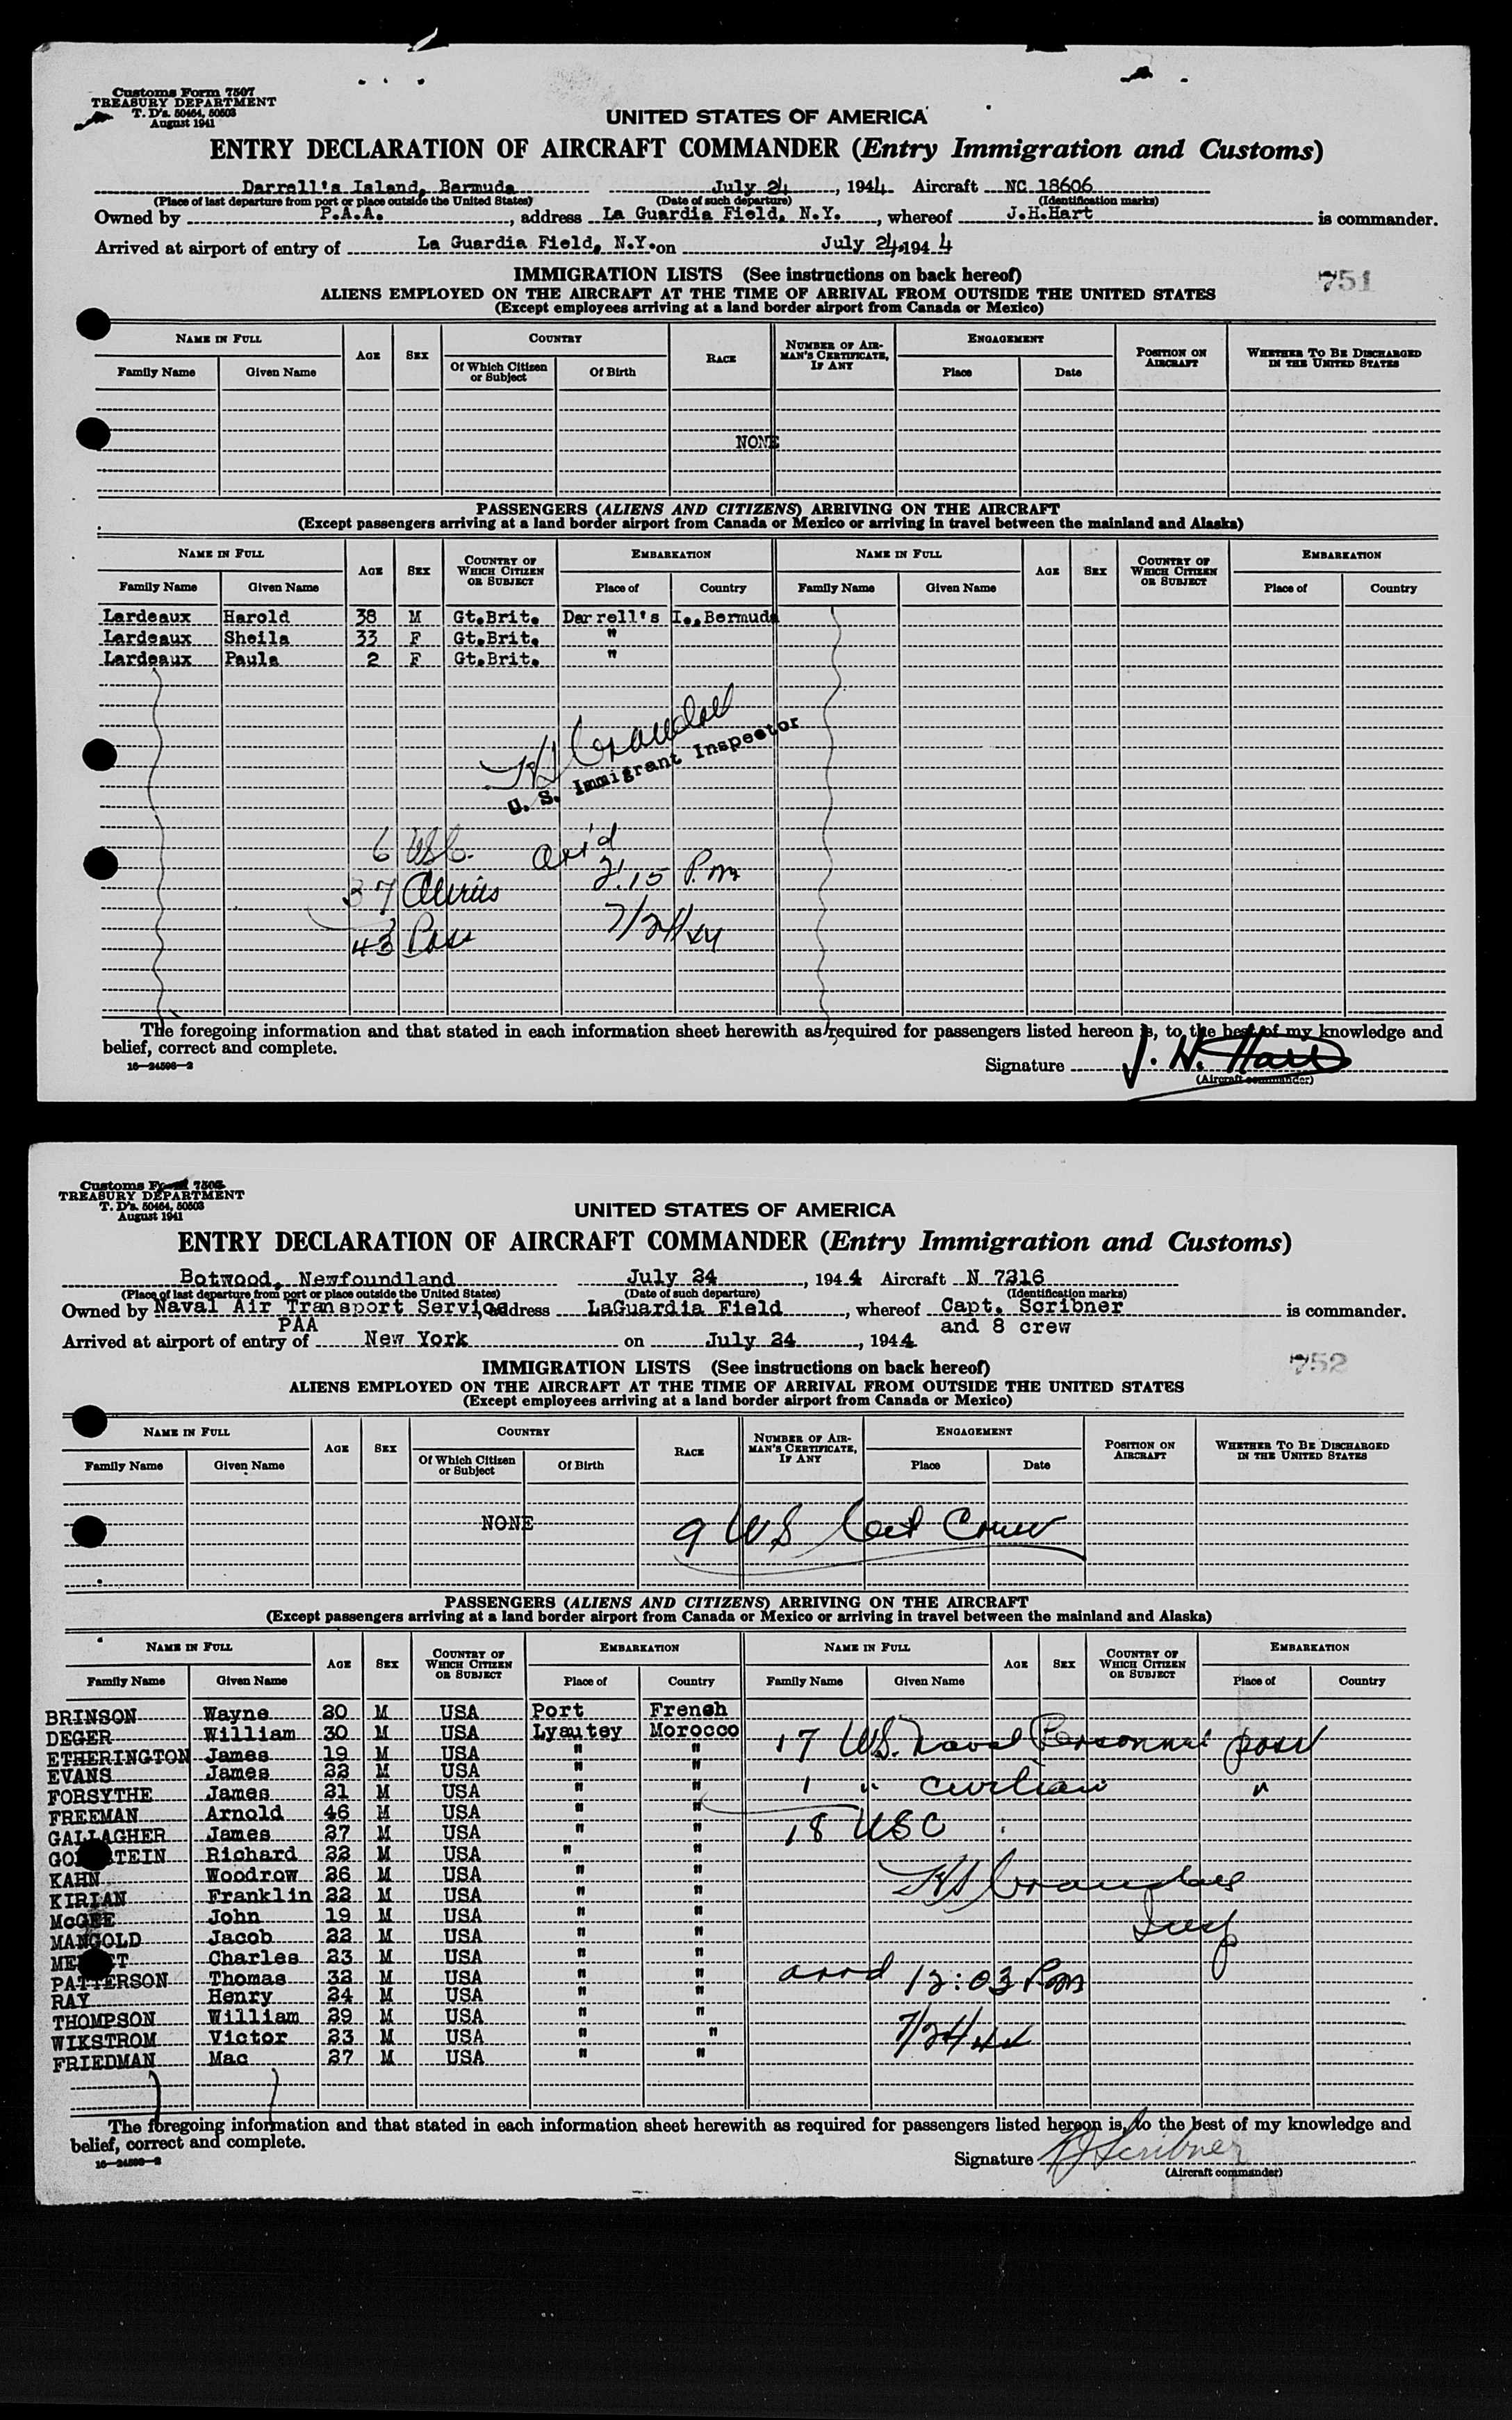 Customs Form 7507
TREASURY DEPARTMENT
T. D's. 50464, 50503
August 1941
UNITED STATES OF AMERICA
ENTRY DECLARATION OF AIRCRAFT COMMANDER (Entry Immigration and Customs)
Darrell's Island, Bermuda July 24, 1944 Aircraft NC 18606
(Place of last departure from port or place outside the United States) (Date of such departure) (Identification marks)
Owned by P.A.A., address La Guardia Field, N.Y., whereof J.H.Hart is commander.
Arrived at airport of entry of La Guardia Field, N.Y. on July 24, 1944
IMMIGRATION LISTS (See instructions on back hereof)
751
ALIENS EMPLOYED ON THE AIRCRAFT AT THE TIME OF ARRIVAL FROM OUTSIDE THE UNITED STATES
(Except employees arriving at a land border airport from Canada or Mexico)
NAME IN FULL AGE SEX COUNTRY RACE NUMBER OF AIRMAN'S CERTIFICATE, IF ANY ENGAGEMENT POSITION ON AIRCRAFT WHETHER TO BE DISCHARGED IN THE UNITED STATES
Family Name Given Name Of Which Citizen or Subject Of Birth Place Date
NONE
PASSENGERS (ALIENS AND CITIZENS) ARRIVING ON THE AIRCRAFT
(Except passengers arriving at a land border airport from Canada or Mexico or arriving in travel between the mainland and Alaska)
NAME IN FULL AGE SEX COUNTRY OF WHICH CITIZEN OR SUBJECT EMBARKATION NAME IN FULL AGE SEX COUNTRY OF WHICH CITIZEN OR SUBJECT EMBARKATION
Family Name Given Name Place of Country Family Name Given Name Place of Country
Lardeaux Harold 38 M Gt.Brit. Darrell's I., Bermuda
Lardeaux Sheila 33 F Gt.Brit. "
Lardeaux Paula 2 F Gt.Brit. "
U. S. Immigrant Inspector
6 USC. arr'd
37 Aliens 2:15 P.m
43 Pass 7/24/44
The foregoing information and that stated in each information sheet herewith as required for passengers listed hereon is, to the best of my knowledge and
belief, correct and complete.
16—24506—2
Signature J. H. Hart
(Aircraft commander)
Customs Form
TREASURY DEPARTMENT
T. D's. 50464, 50503
August 1941
UNITED STATES OF AMERICA
ENTRY DECLARATION OF AIRCRAFT COMMANDER (Entry Immigration and Customs)
Botwood, Newfoundland July 24, 1944 Aircraft N 7216
(Place of last departure from port or place outside the United States) (Date of such departure) (Identification marks)
Owned by Naval Air Transport Service address LaGuardia Field, whereof Capt. Scribner is commander.
PAA and 8 crew
Arrived at airport of entry of New York on July 24, 1944
IMMIGRATION LISTS (See instructions on back hereof)
752
ALIENS EMPLOYED ON THE AIRCRAFT AT THE TIME OF ARRIVAL FROM OUTSIDE THE UNITED STATES
(Except employees arriving at a land border airport from Canada or Mexico)
NAME IN FULL AGE SEX COUNTRY RACE NUMBER OF AIRMAN'S CERTIFICATE, IF ANY ENGAGEMENT POSITION ON AIRCRAFT WHETHER TO BE DISCHARGED IN THE UNITED STATES
Family Name Given Name Of Which Citizen or Subject Of Birth Place Date
NONE 9 US Cit Crew
PASSENGERS (ALIENS AND CITIZENS) ARRIVING ON THE AIRCRAFT
(Except passengers arriving at a land border airport from Canada or Mexico or arriving in travel between the mainland and Alaska)
NAME IN FULL AGE SEX COUNTRY OF WHICH CITIZEN OR SUBJECT EMBARKATION NAME IN FULL AGE SEX COUNTRY OF WHICH CITIZEN OR SUBJECT EMBARKATION
Family Name Given Name Place of Country Family Name Given Name Place of Country
BRINSON Wayne 20 M USA Port French
DEGER William 30 M USA Lyautey Morocco 17 US. Naval Personnel pass
ETHERINGTON James 19 M USA " "
EVANS James 22 M USA " "
FORSYTHE James 21 M USA " " 1 " civilian "
FREEMAN Arnold 46 M USA " "
GALLAGHER James 27 M USA " " 18 USC
GO TEIN Richard 22 M USA " "
KAHN Woodrow 26 M USA " "
KIRIAN Franklin 22 M USA " "
McGEE John 19 M USA " "
MANGOLD Jacob 22 M USA " " Insp
ME T Charles 23 M USA " "
PATTERSON Thomas 32 M USA " " arrd 12:03 P.m
RAY Henry 24 M USA " "
THOMPSON William 29 M USA " "
WIKSTROM Victor 23 M USA " " 7/24/44
FRIEDMAN Mac 27 M USA " "
The foregoing information and that stated in each information sheet herewith as required for passengers listed hereon is, to the best of my knowledge and
belief, correct and complete.
Signature Scribner
(Aircraft commander)